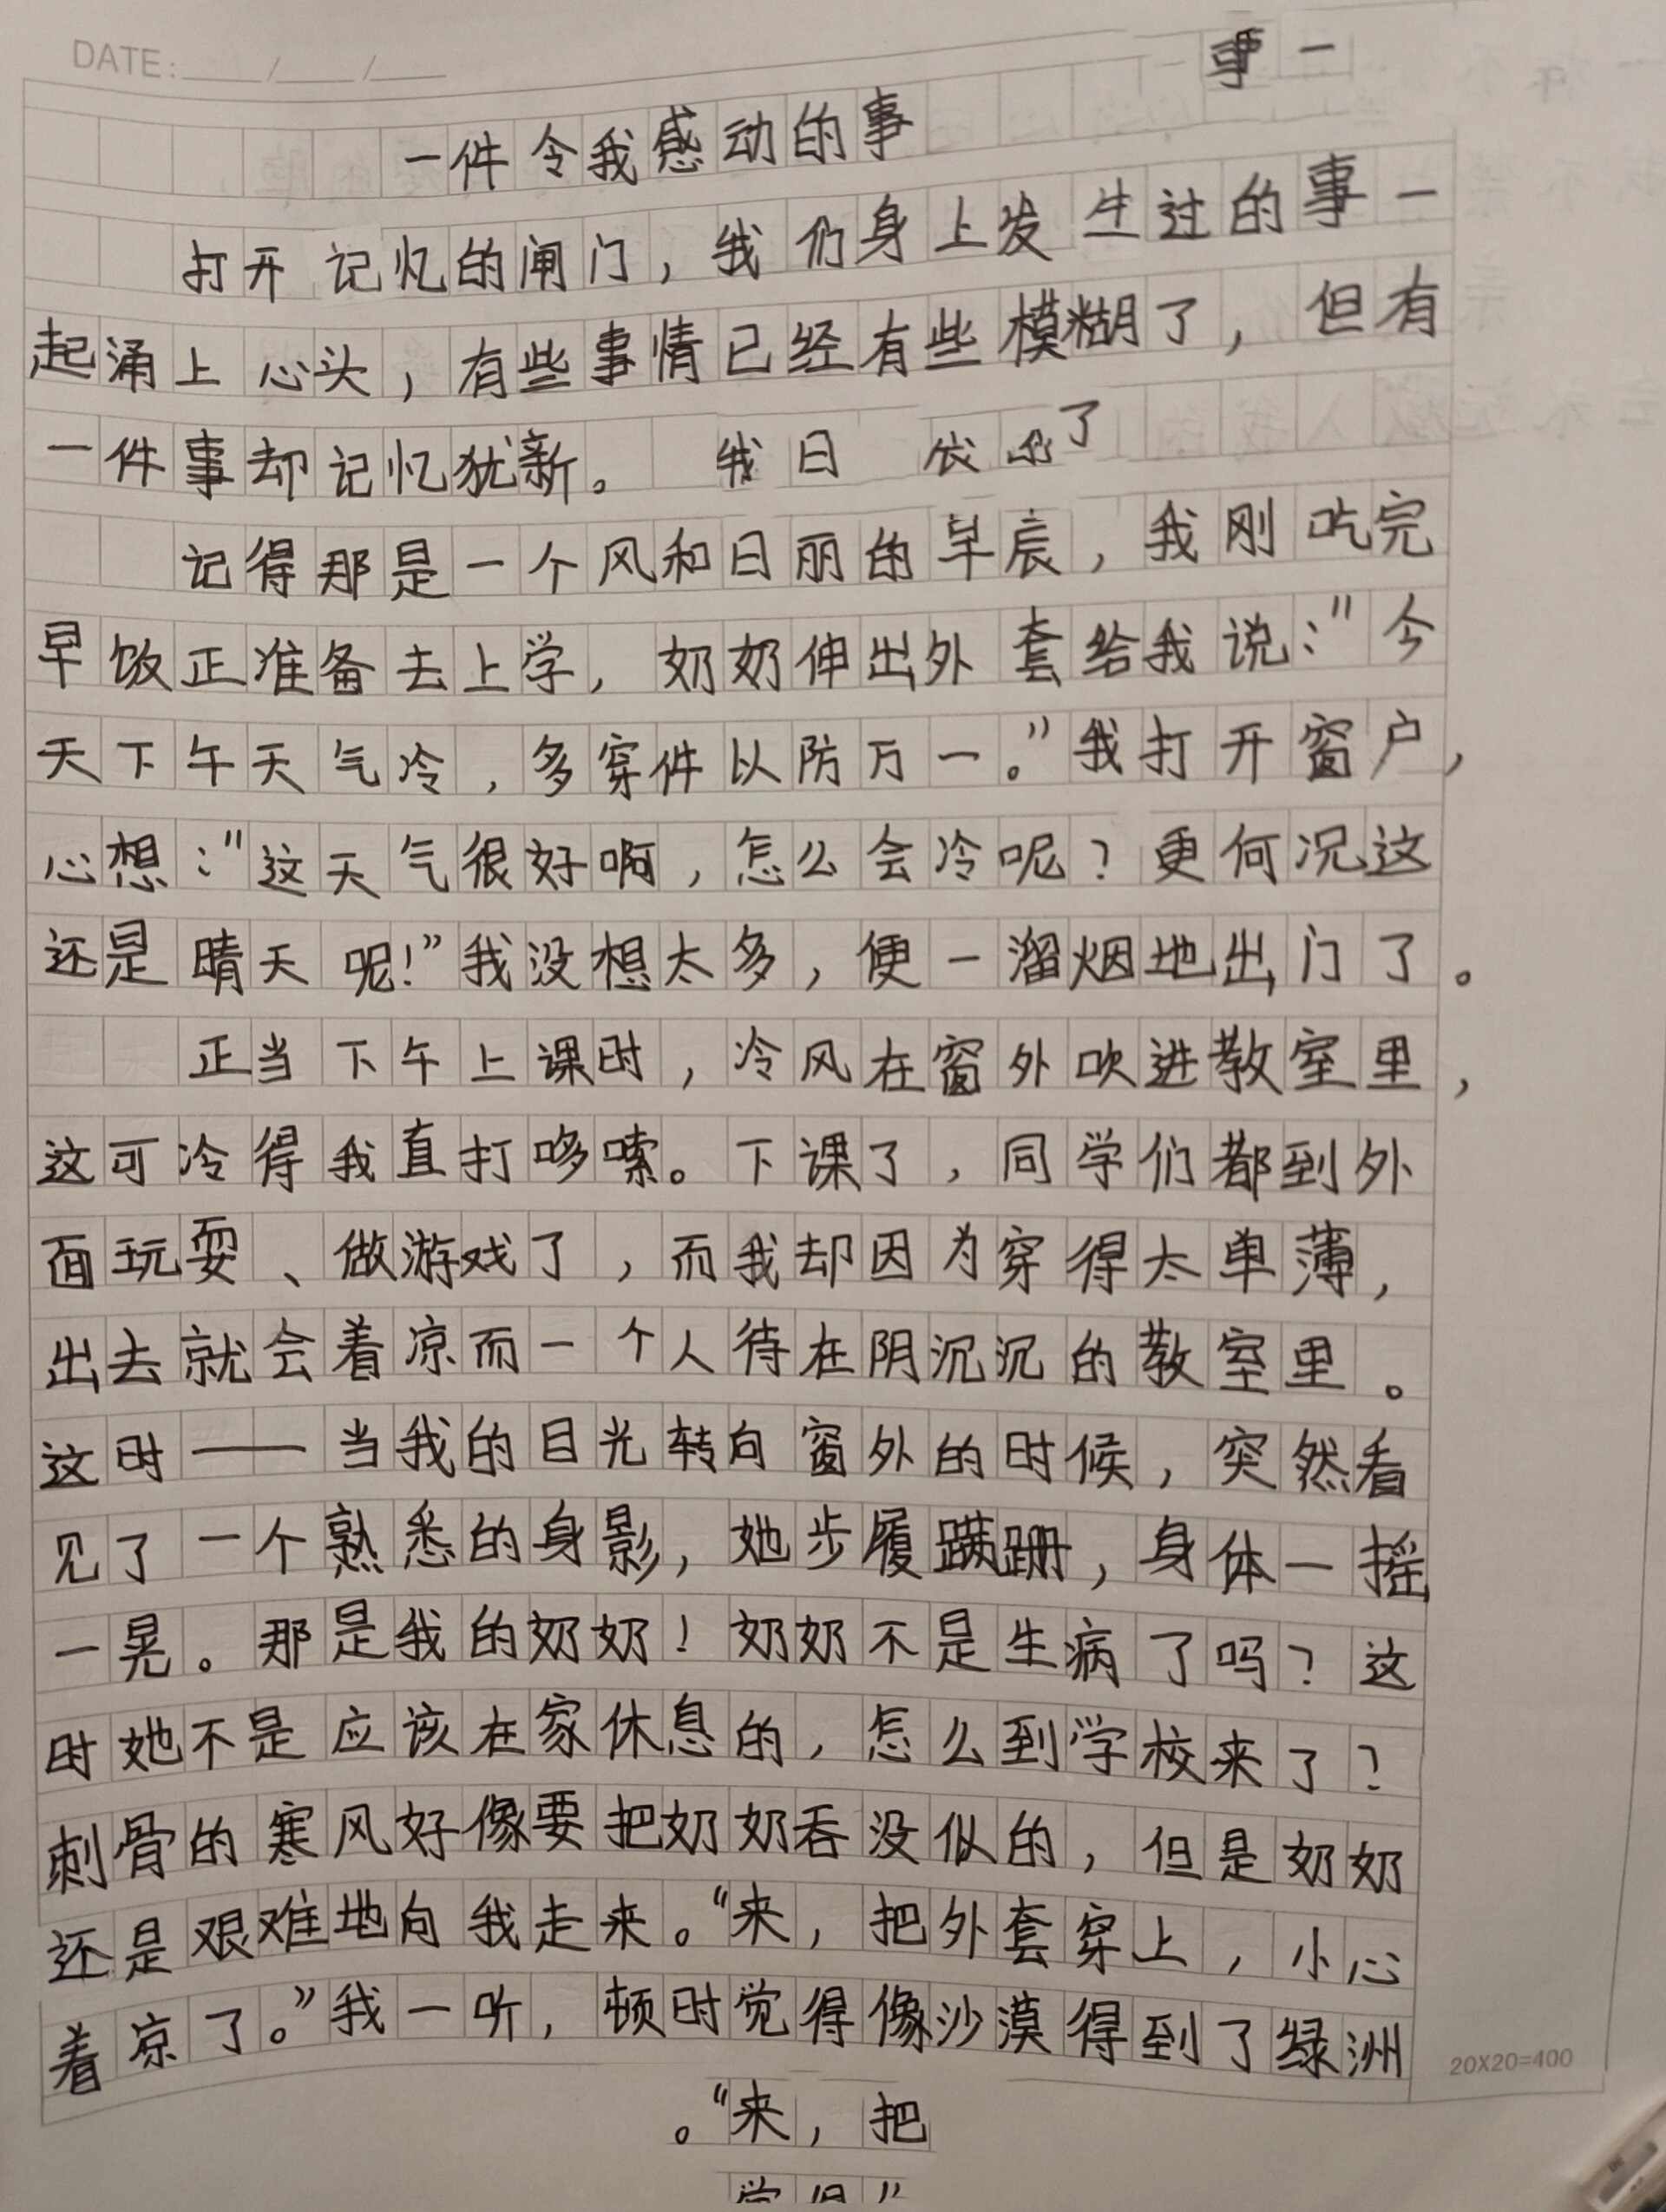 DATE: ____/____/____
事一
一件令我感动的事
打开记忆的闸门，我们身上发生过的事一
起涌上心头，有些事情已经有些模糊了，但有
一件事却记忆犹新。 我日
了
记得那是一个风和日丽的早辰，我刚吃完
早饭正准备去上学，奶奶伸出外套给我说：“今
天下午天气冷，多穿件以防万一。”我打开窗户，
心想：“这天气很好啊，怎么会冷呢？更何况这
还是晴天呢！”我没想太多，便一溜烟地出门了。
正当下午上课时，冷风在窗外吹进教室里，
这可冷得我直打哆嗦。下课了，同学们都到外
面玩耍、做游戏了，而我却因为穿得太单薄，
出去就会着凉而一个人待在阴沉沉的教室里。
这时——当我的目光转向窗外的时候，突然看
见了一个熟悉的身影，她步履蹒跚，身体一摇
一晃。那是我的奶奶！奶奶不是生病了吗？这
时她不是应该在家休息的，怎么到学校来了？
刺骨的寒风好像要把奶奶吞没似的，但是奶奶
还是艰难地向我走来。“来，把外套穿上，小心
着凉了。”我一听，顿时觉得像沙漠得到了绿洲
20X20=400
。“来，把